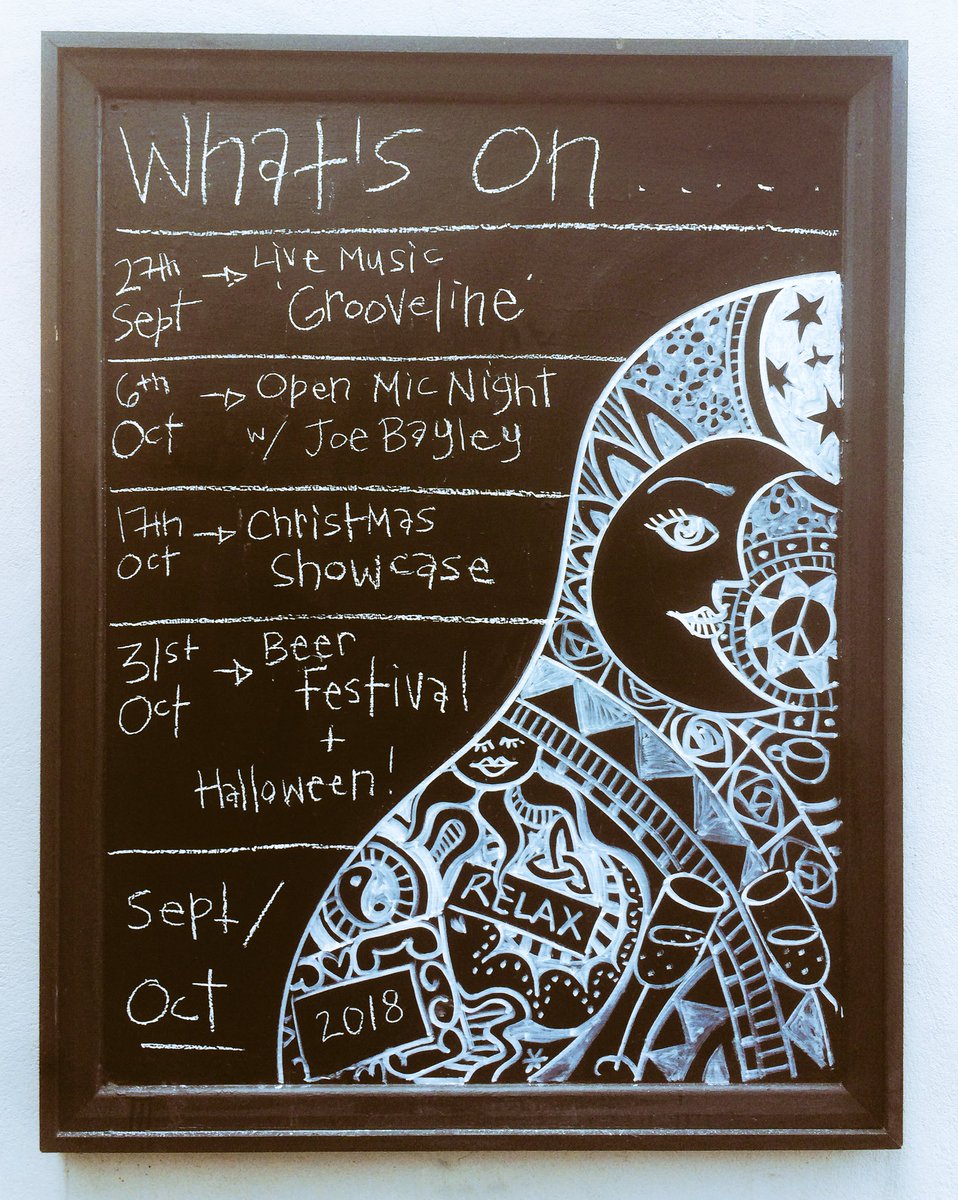 What's On ......
27th → Live Music
Sept 'Grooveline'
6th → Open Mic Night
Oct w/ Joe Bayley
17th → Christmas
Oct Showcase
31st → Beer
Oct Festival
+
Halloween!
Sept/
Oct
RELAX
2018